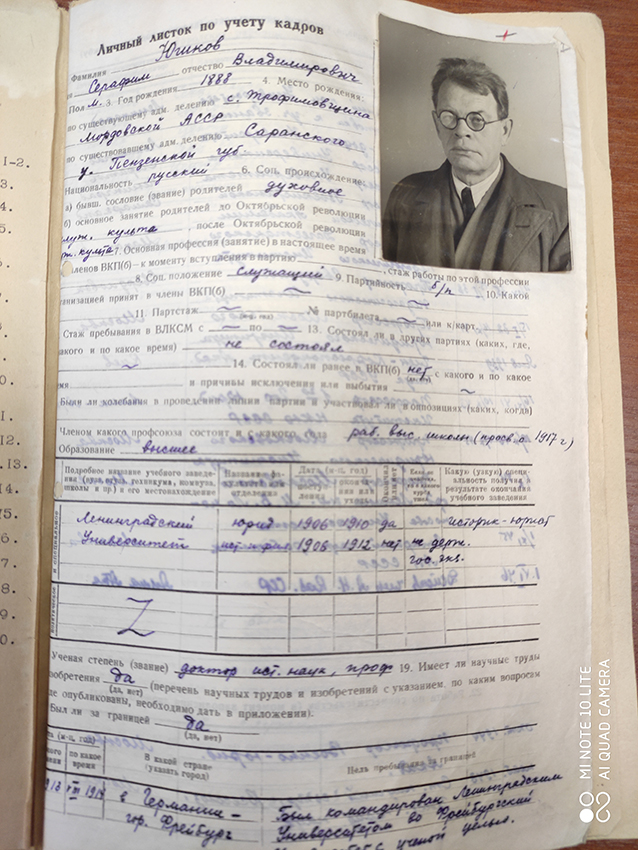 Личный листок по учету кадров
Фамилия Юшков
Серафим отчество Владимирович
Пол м. 3. Год рождения 1888 4. Место рождения:
по существующему адм. делению с. Трофимовщина
Мордовской АССР
по существовавшему адм. делению Саранского
у. Пензенской губ.
Национальность русский 6. Соц. происхождение:
а) бывш. сословие (звание) родителей духовное
б) основное занятие родителей до Октябрьской революции
служ. культа после Октябрьской революции
культа 7. Основная профессия (занятие) в настоящее время
членов ВКП(б) - к моменту вступления в партию
стаж работы по этой профессии
8. Соц. положение служащий 9. Партийность б/п 10. Какой
организацией принят в члены ВКП(б) ~
11. Партстаж ~ № партбилета ~ или к/карт.
Стаж пребывания в ВЛКСМ с ~ по ~ 13. Состоял ли в других партиях (каких, где,
какого и по какое время) не состоял
~ 14. Состоял ли ранее в ВКП(б) нет с какого и по какое
и причины исключения или выбытия ~
Были ли колебания в проведении линии партии и участвовал ли в оппозициях (каких, когда)
Членом какого профсоюза состоит и с какого года раб. выс. школы (просв. с 1917 г)
Образование высшее
Подробное название учебного заведе- Название фа- Дата (м-ц, год) Какую (узкую) специ-
альность получил в
и ее местонахождение отделения результате окончания
учебного заведения
Ленинградский юрид 1906 1910 да историк-юрист
Университет ист.-фил 1906 1912 нет не держ.
гос. экз.
Z
Ученая степень (звание) доктор ист. наук, проф 19. Имеет ли научные труды
изобретения да (перечень научных трудов и изобретений с указанием, по каким вопросам
(да, нет)
где опубликованы, необходимо дать в приложении).
Был ли за границей да
(да, нет)
(м-ц, год)
по какое время В какой стране (указать город) Цель пребывания за границей
1913 VIII 1914 в Германии - Был командирован Ленинградским
гор. Фрейбург Университетом во Фрейбургский
с ученой целью.
I-2.
3.
4.
5.
MI NOTE 10 LITE
AI QUAD CAMERA